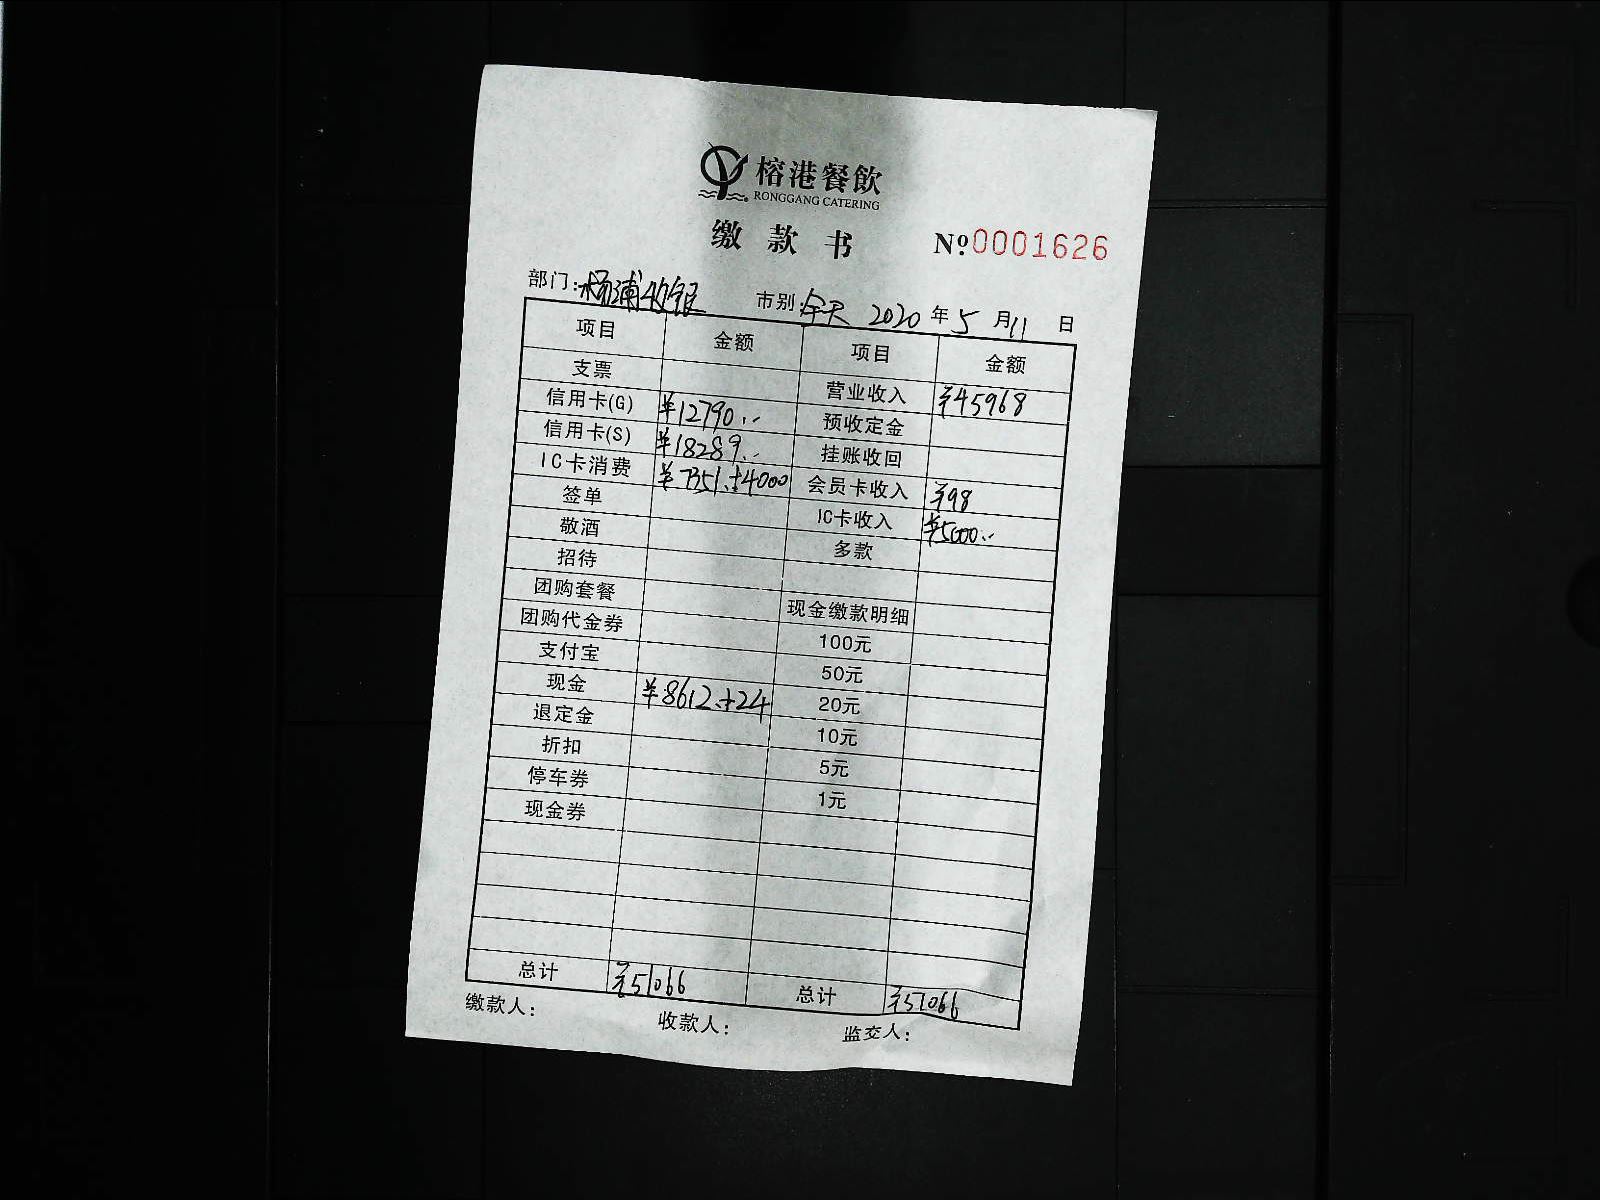 榕港餐飲
RONGGANG CATERING
缴款书 №0001626
部门:杨浦收银 市别:全天 2020年5月11日
项目 金额 项目 金额
支票 营业收入 ¥45968
信用卡(G) ¥12790.-- 预收定金
信用卡(S) ¥18289.-- 挂账收回
IC卡消费 ¥7351.+4000 会员卡收入 ¥98
签单 IC卡收入 ¥5000.--
敬酒 多款
招待
团购套餐 现金缴款明细
团购代金券 100元
支付宝 50元
现金 ¥8612.+24 20元
退定金 10元
折扣 5元
停车券 1元
现金券
总计 ¥51066 总计 ¥51066
缴款人: 收款人: 监交人: